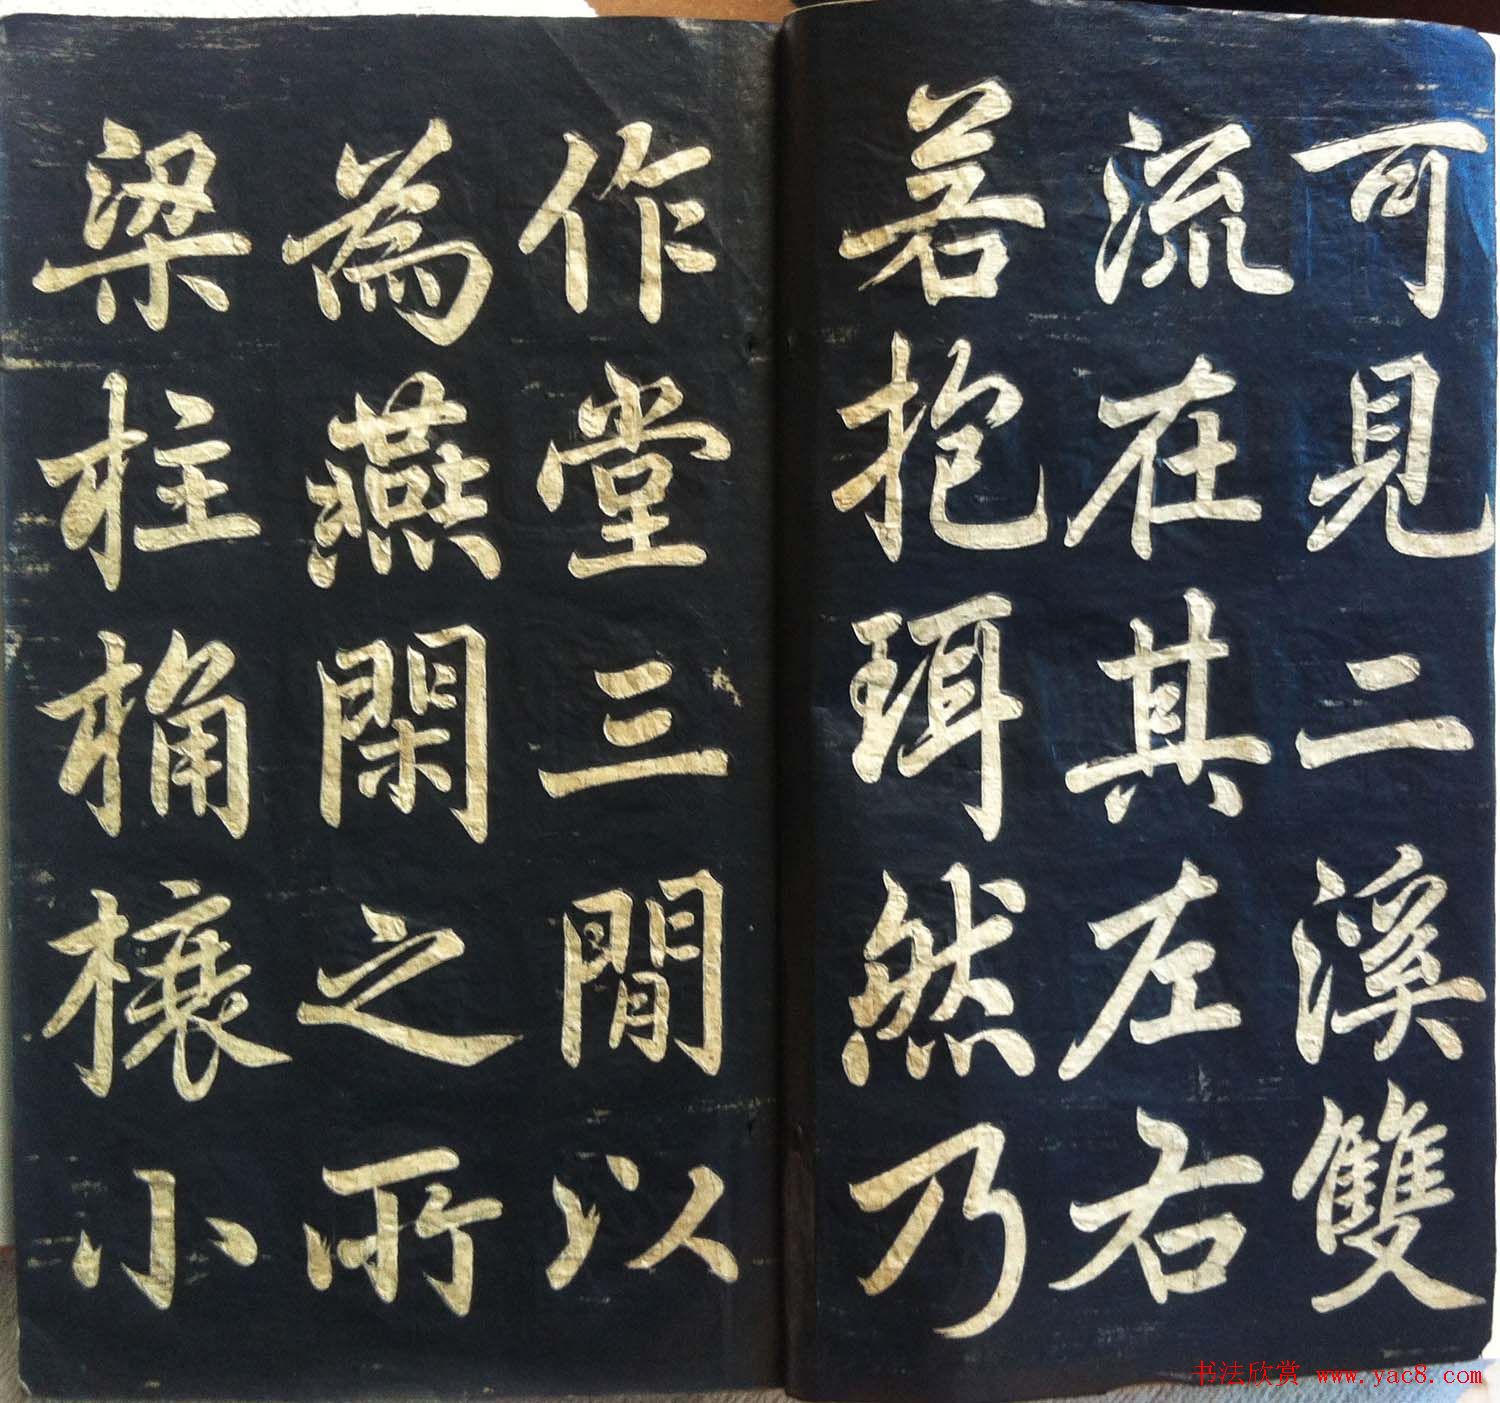 可見二溪雙
流在其左右
若抱珥然乃
作堂三間以
為燕閑之所
梁柱桷榱小
书法欣赏 www.yac8.com